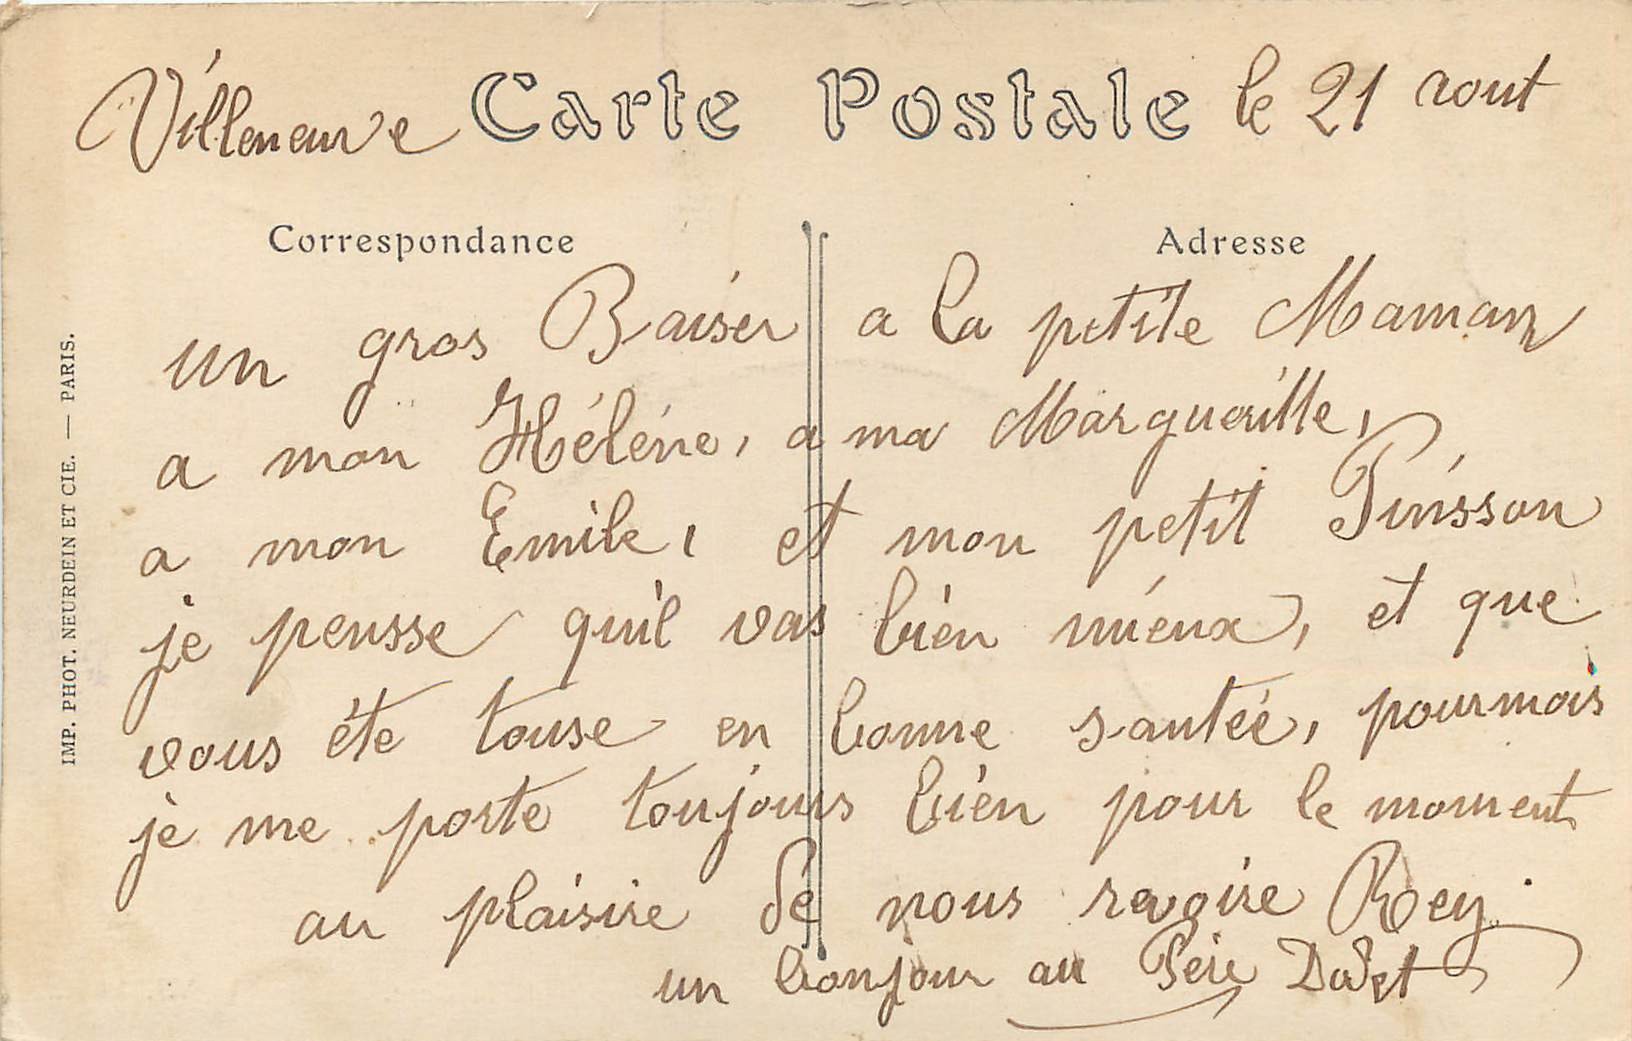 Villeneuve Carte Postale le 21 aout
Correspondance Adresse
un gros Baiser a la petite Maman
a mon Hélène, a ma Marguerille,
a mon Emile, et mon petit Pinsson
je pensse qu'il vas bien mieux, et que
vous éte touse en bonne santée, pourmois
je me porte toujours bien pour le moment
au plaisire de nous ravoire Rey
un bonjour au Père
IMP. PHOT. NEURDEIN ET CIE. — PARIS.